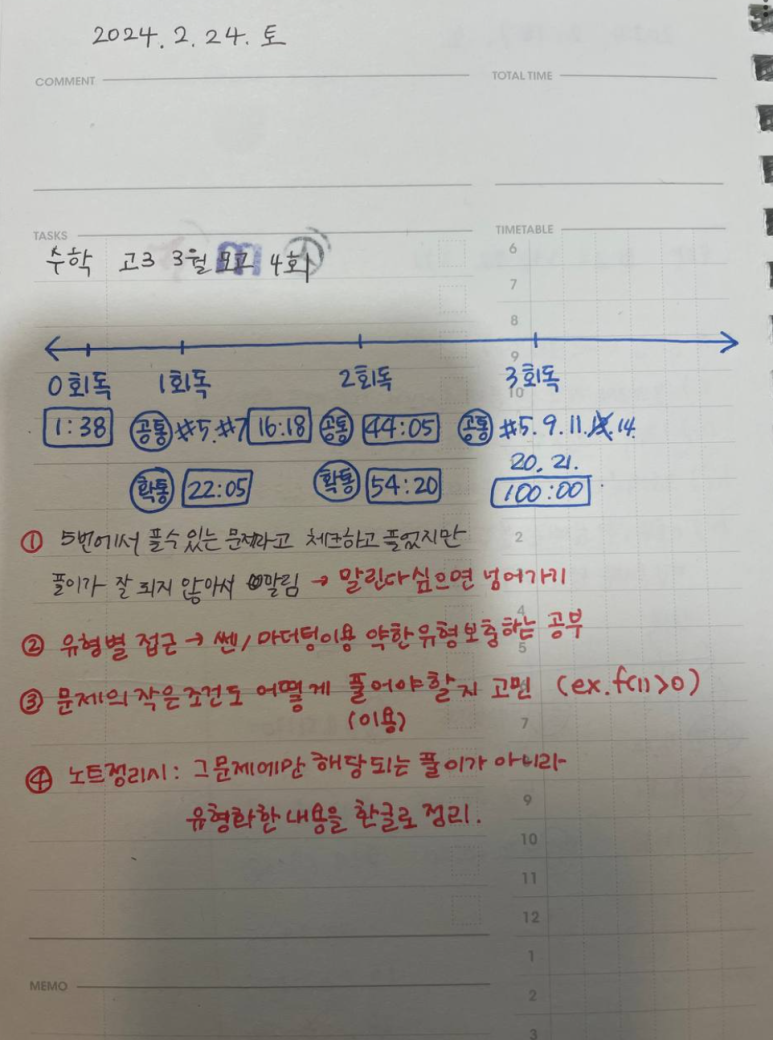 2024. 2. 24. 토
COMMENT
TOTAL TIME
TASKS
TIMETABLE
수학 고3 3월 모고 4회
0회독 1회독 2회독 3회독
1:38 공통 #5. #7 16:18 공통 44:05 공통 #5. 9. 11. 14.
20. 21.
확통 22:05 확통 54:20 100:00
① 5번에서 풀수 있는 문제라고 체크하고 풀었지만
풀이가 잘 되지 않아서 말림 → 말린다 싶으면 넘어가기
② 유형별 접근 → 쎈/마더텅이용 약한 유형 보충하는 공부
③ 문제의 작은 조건도 어떻게 풀어야할지 고민 (ex. f(1)>0)
(이용)
④ 노트정리시: 그 문제에만 해당되는 풀이가 아니라
유형화한 내용을 한글로 정리.
MEMO
6
7
8
9
10
2
4
5
7
9
10
11
12
1
2
3